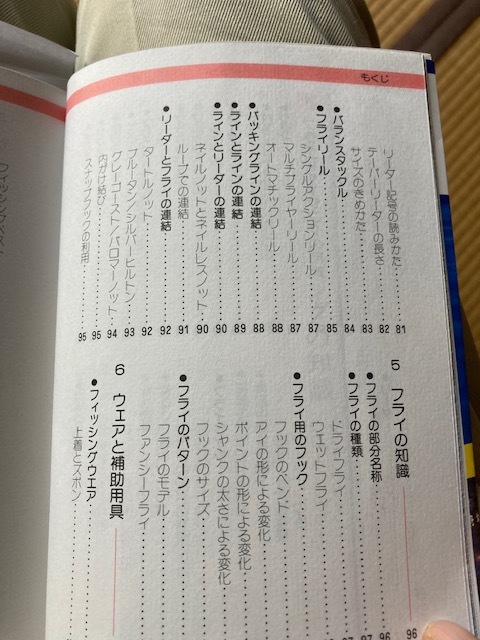 もくじ
リーダー記号の読みかた……81
テーパーリーダーの長さ……82
サイズのきめかた……83
●バランスタックル……84
●フライリール……85
シングルアクションリール……87
マルチプライヤーリール……87
オートマチックリール……88
●バッキングラインの連結……88
●ラインとラインの連結……89
●ラインとリーダーの連結……90
ネイルノットとネイルレスノット……90
ループでの連結……91
●リーダーとフライの連結……92
タートルノット……92
ブルータン/シルバーヒルトン……93
グレーゴースト/パロマーノット……94
内かけ結び……95
スナップフックの利用……95
5 フライの知識 96
●フライの部分名称……96
●フライの種類……97
ドライフライ……
ウェットフライ……
●フライ用のフック……
フックのベンド……
アイの形による変化……
ポイントの形による変化……
シャンクの太さによる変化……
フックのサイズ……
●フライのパターン……
フライのモデル……
ファンシーフライ……
6 ウェアと補助用具
●フィッシングウエア……
上着とズボン……